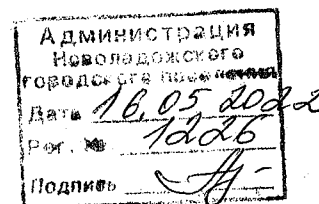 Администрация
Новоладожского
городского поселения
Дата 16.05.2022
Рег. № 1226
Подпись